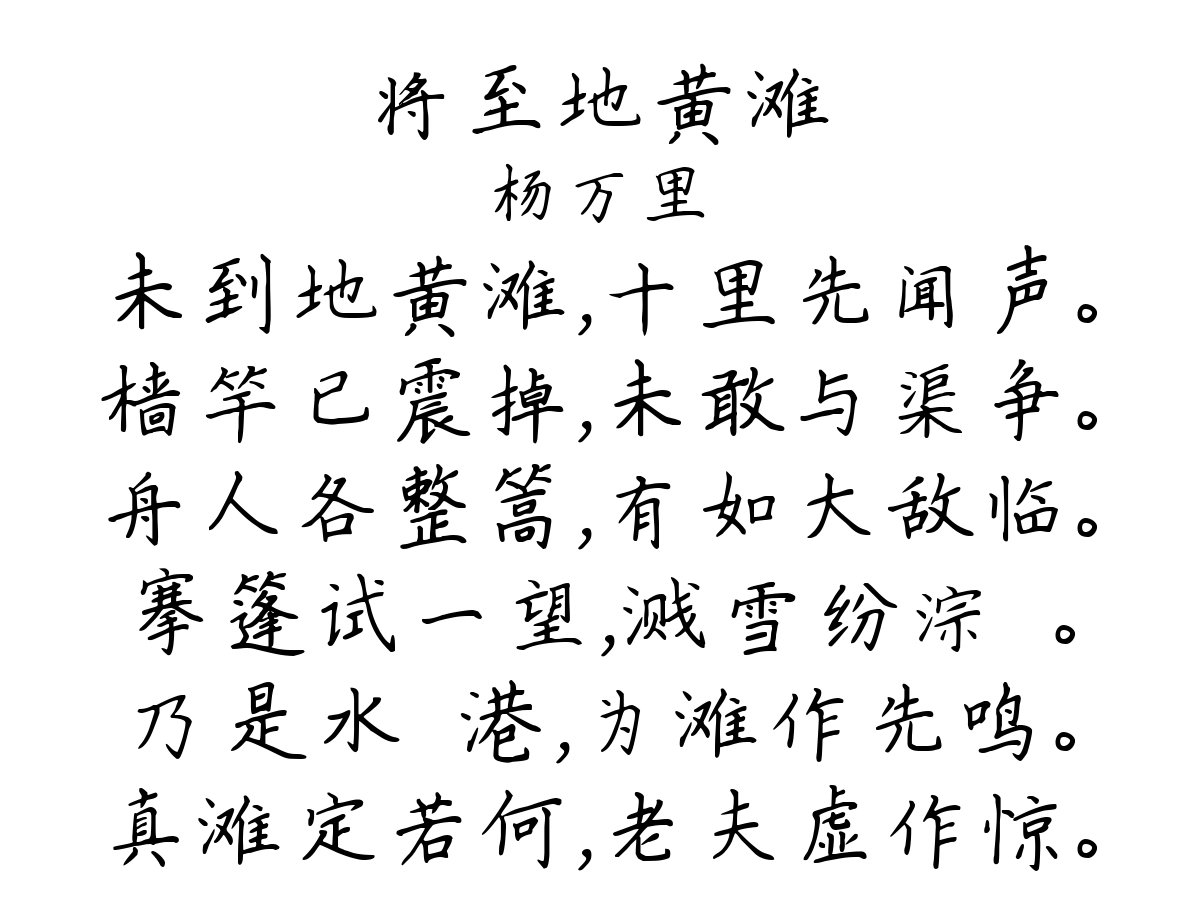 将至地黄滩
杨万里
未到地黄滩,十里先闻声。
樯竿已震掉,未敢与渠争。
舟人各整篙,有如大敌临。
搴篷试一望,溅雪纷淙 。
乃是水 港,为滩作先鸣。
真滩定若何,老夫虚作惊。